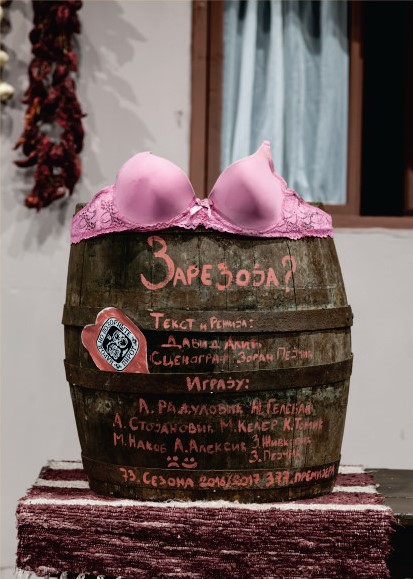 Зарезоја?
Текст и Режија:
Давид Алић
Сценограф: Зоран
Играју:
А. Радуловић
А. Стојановић М. Келер К. Томић
М. Наков А. Алексић З. Живковић
73. Сезона 2016/2017 377. Премијера